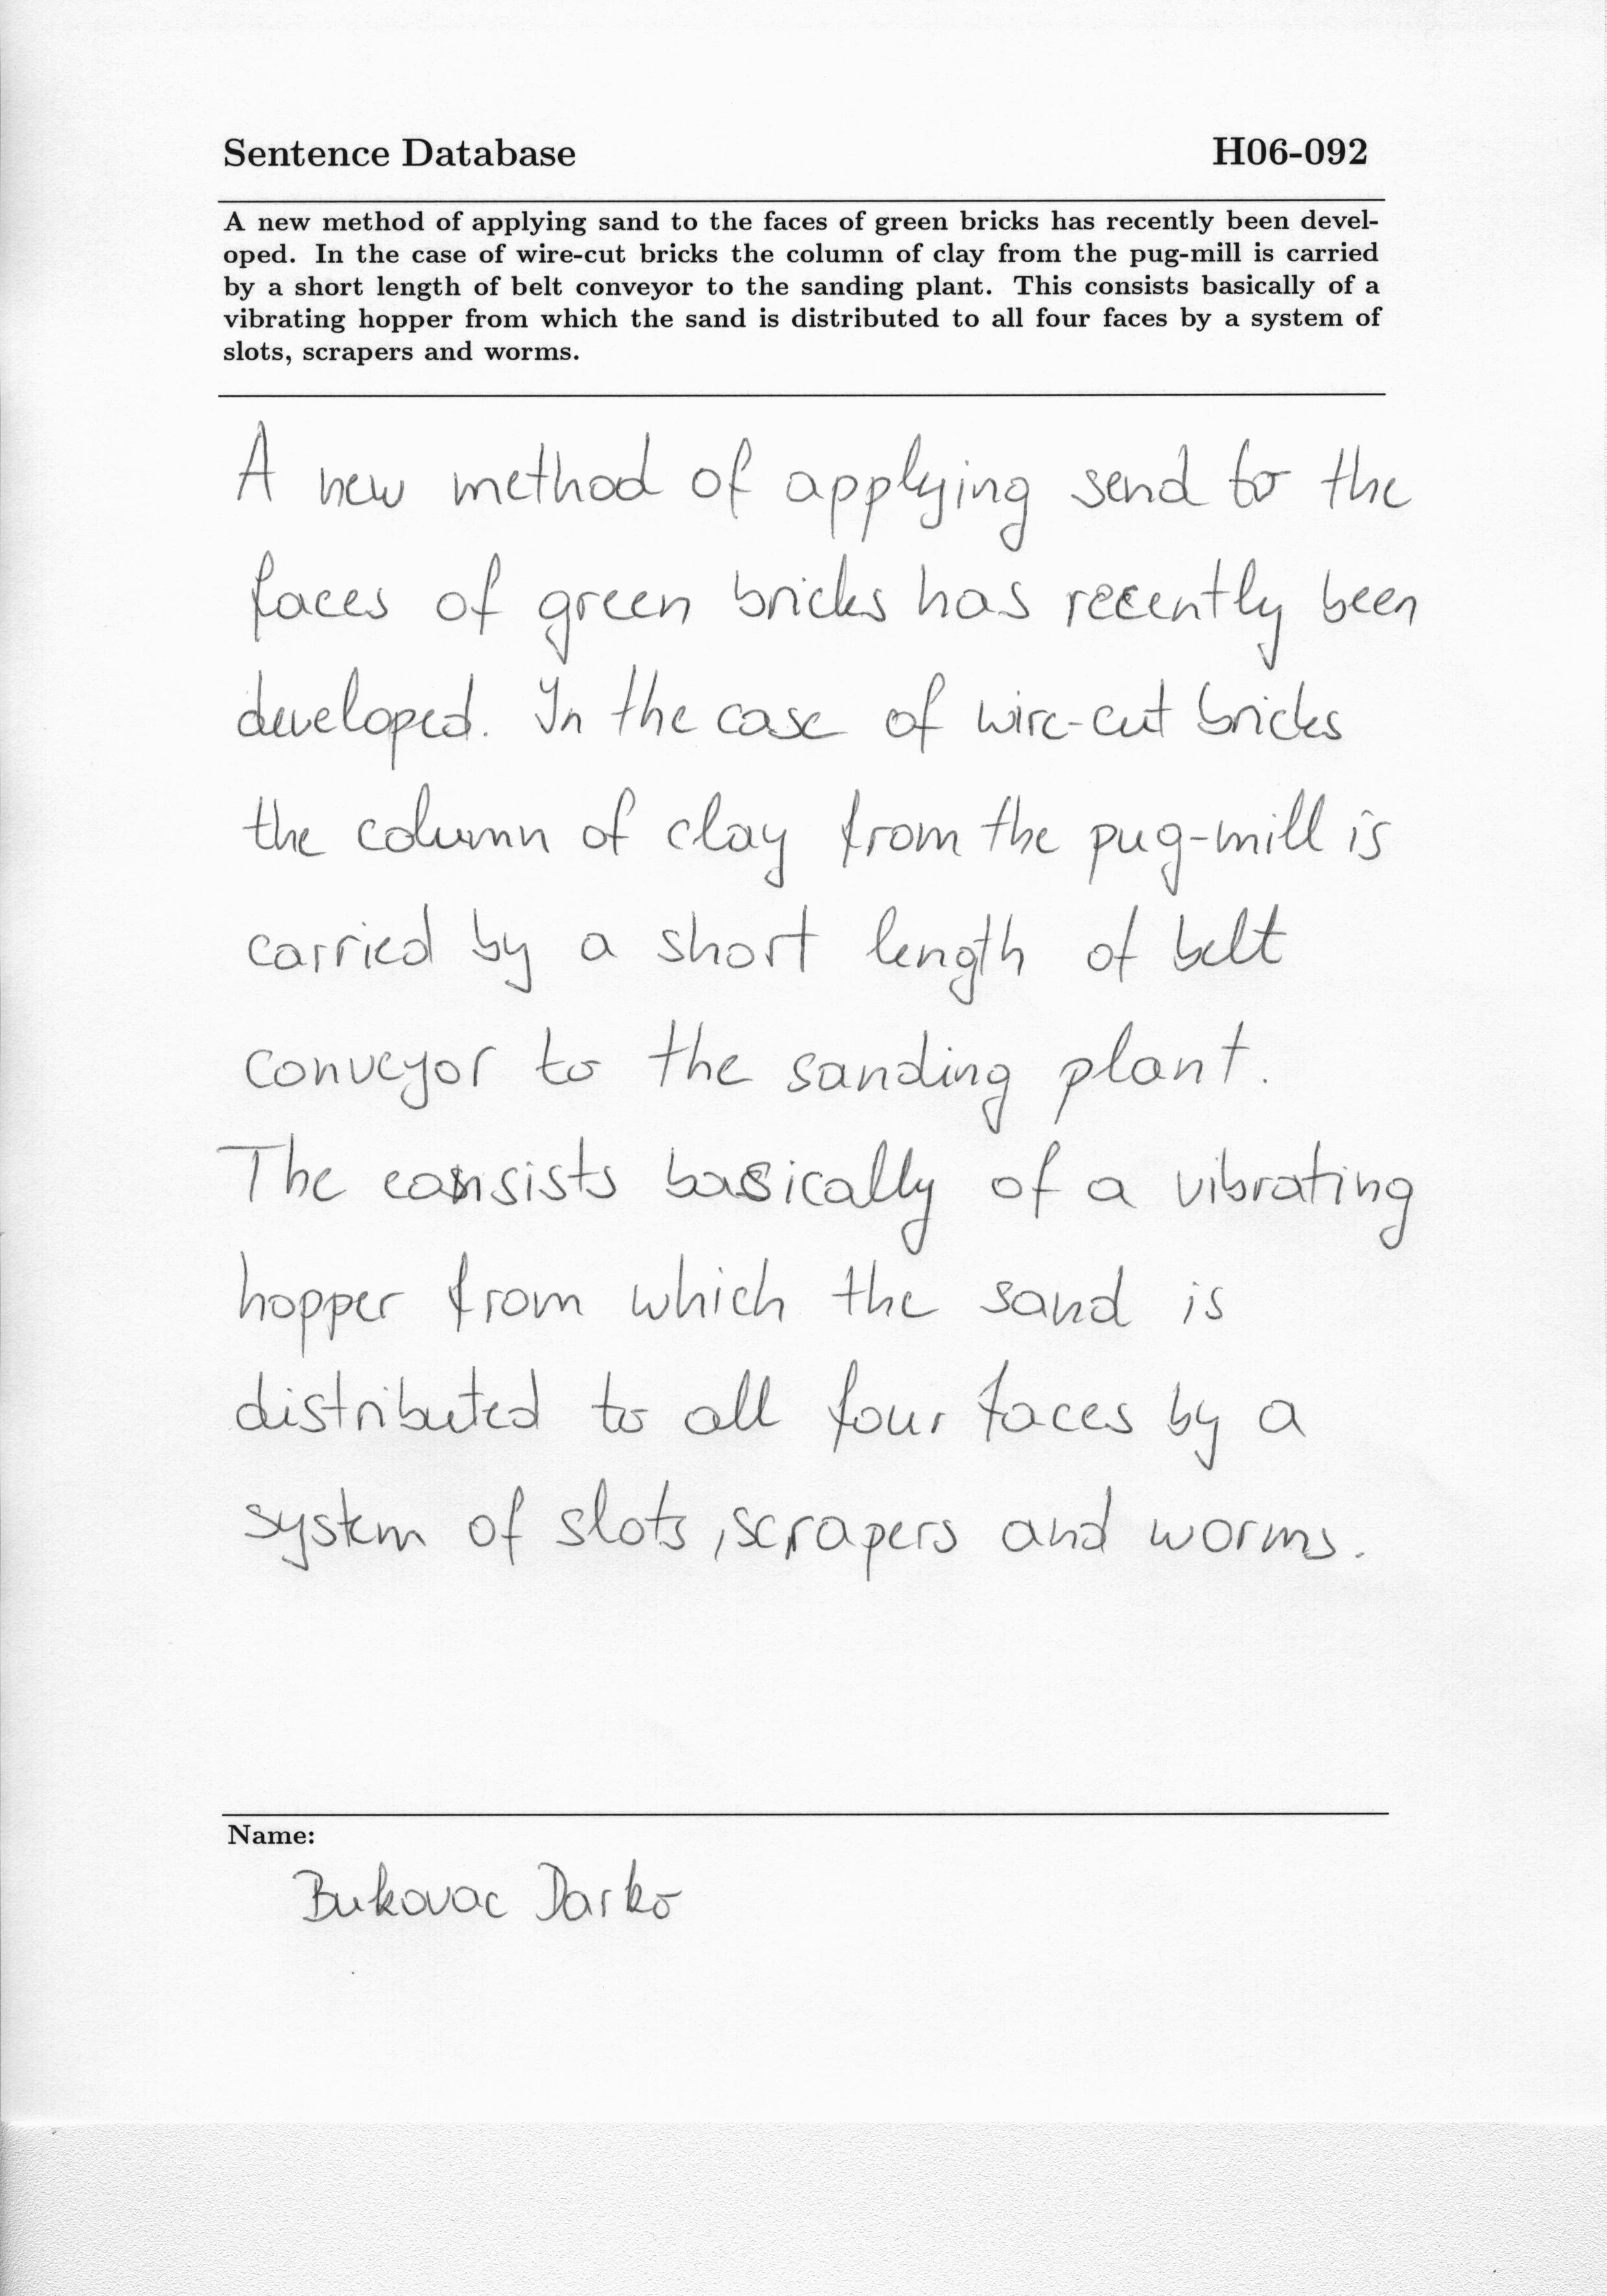 Sentence Database H06-092
A new method of applying sand to the faces of green bricks has recently been devel-
oped. In the case of wire-cut bricks the column of clay from the pug-mill is carried
by a short length of belt conveyor to the sanding plant. This consists basically of a
vibrating hopper from which the sand is distributed to all four faces by a system of
slots, scrapers and worms.
A new method of applying send to the
faces of green bricks has recently been
developed. In the case of wire-cut bricks
the column of clay from the pug-mill is
carried by a short length of belt
conveyor to the sanding plant.
The consists basically of a vibrating
hopper from which the sand is
distributed to all four faces by a
system of slots, scrapers and worms.
Name:
Bukovac Darko